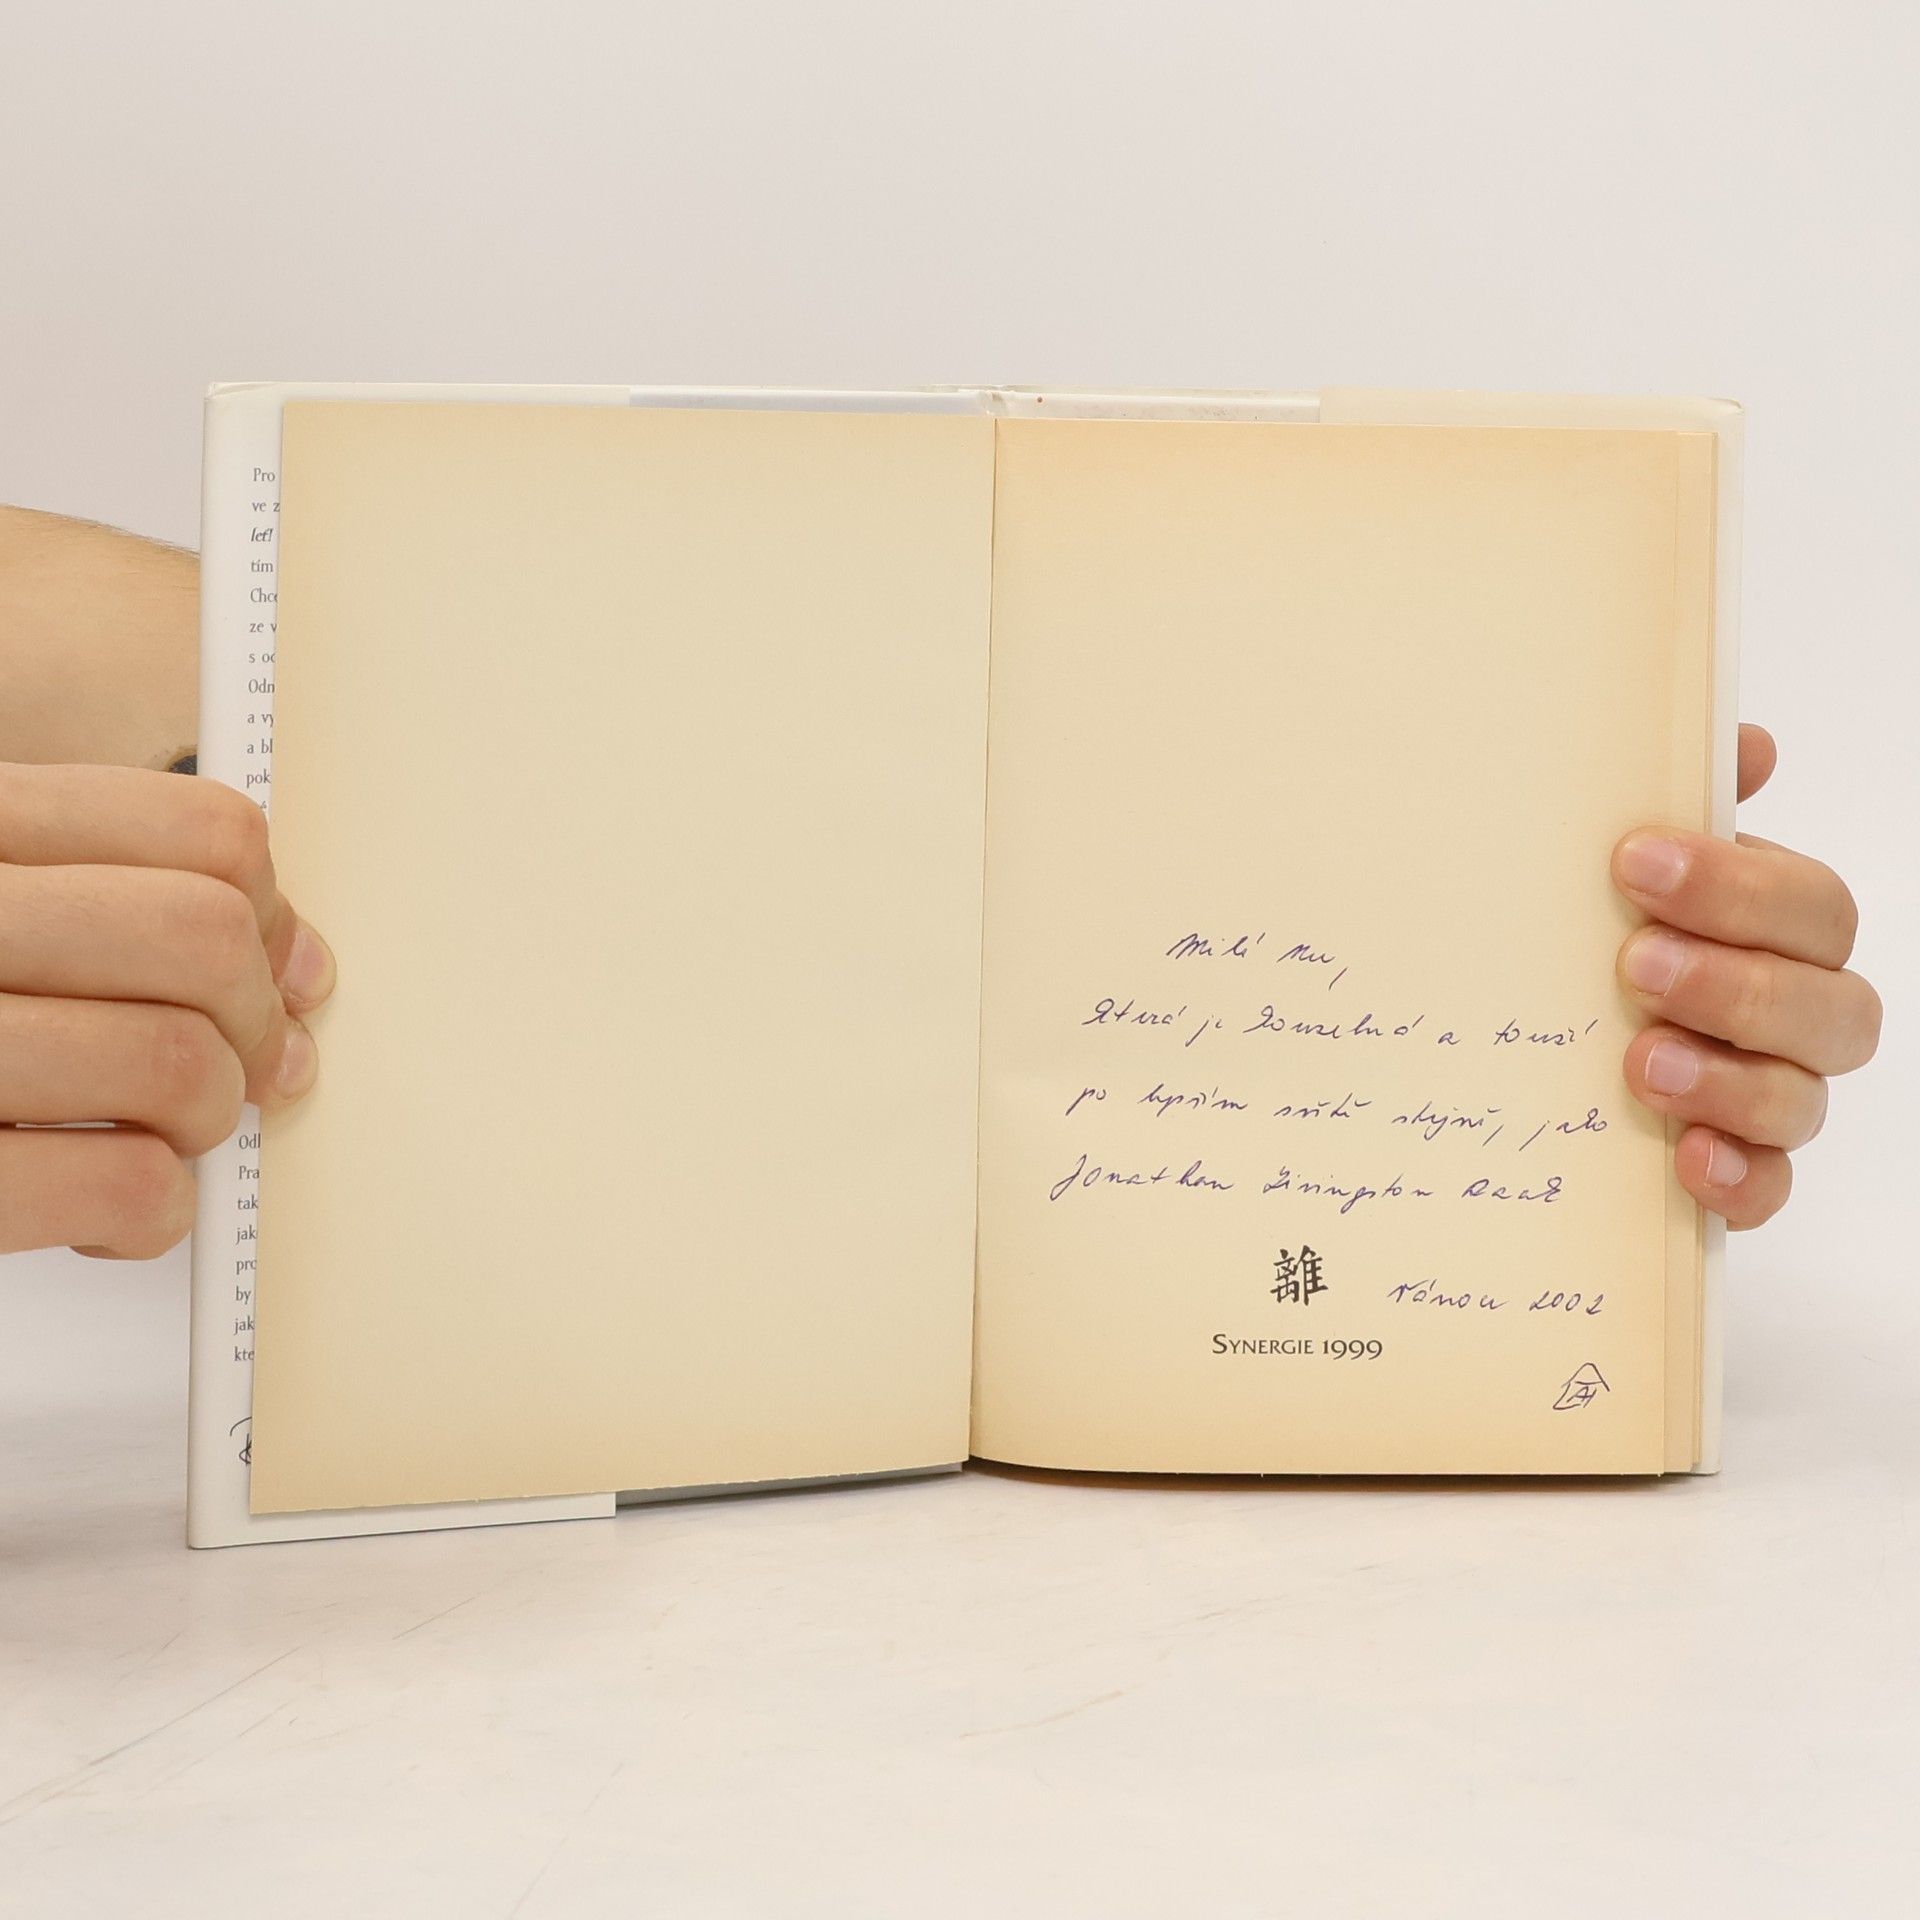 Pro
ve z
leť!
tím
Chce
ze v
s oc
Odm
a vy
a bl
pok
Odl
Pra
tak
jak
pro
by
jak
kte
Milé
která je kouzelná a touží
po lepším světě stejně, jako
Jonathan Livingston
離
Vánoce 2002
SYNERGIE 1999